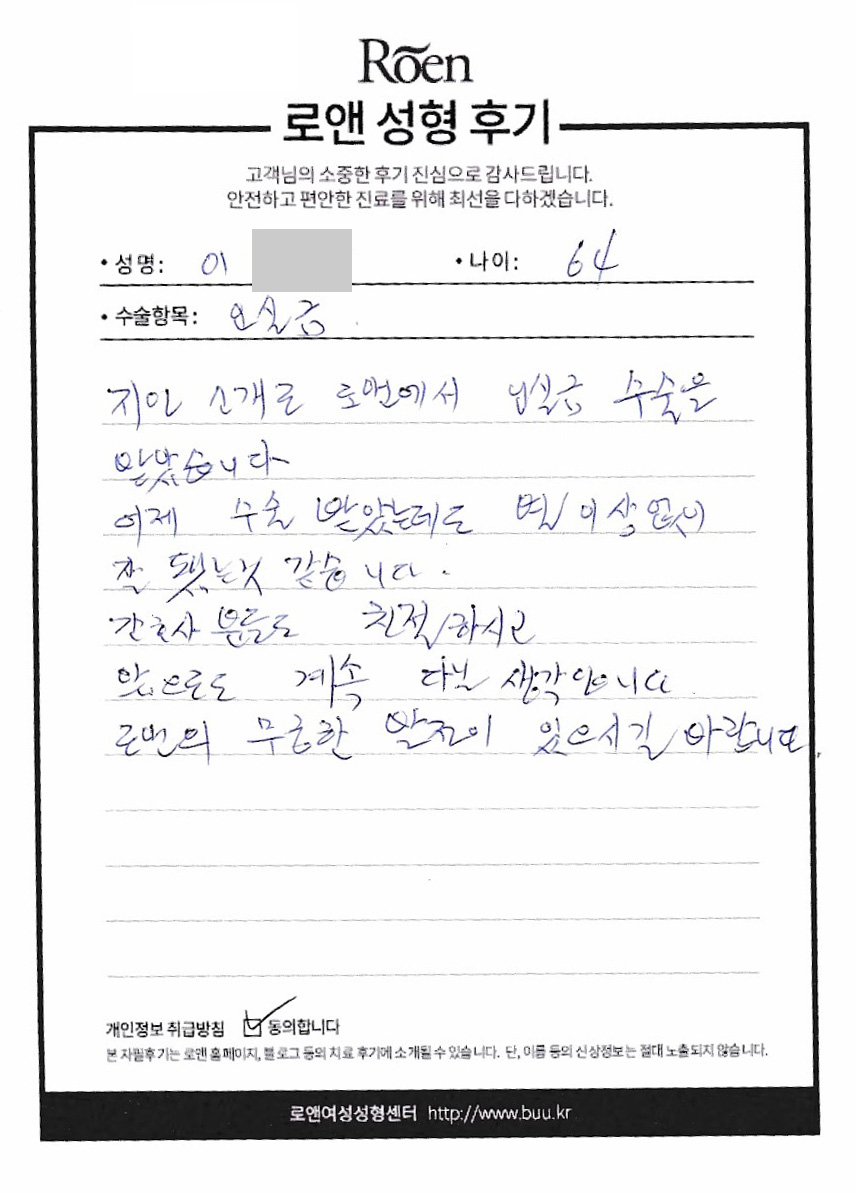 Rōen
로앤 성형 후기
고객님의 소중한 후기 진심으로 감사드립니다.
안전하고 편안한 진료를 위해 최선을 다하겠습니다.
• 성명: 이 • 나이: 64
• 수술항목: 요실금
지인 소개로 로앤에서 요실금 수술을
받았습니다
어제 수술 받았는데도 별 이상 없이
잘 됐는것 같습니다.
간호사 분들도 친절하시고
앞으로도 계속 다닐 생각입니다
로앤의 무궁한 발전이 있으시길 바랍니다.
개인정보 취급방침 ☑ 동의합니다
본 자필후기는 로앤 홈페이지, 블로그 등의 치료 후기에 소개될 수 있습니다. 단, 이름 등의 신상정보는 절대 노출되지 않습니다.
로앤여성성형센터 http://www.buu.kr